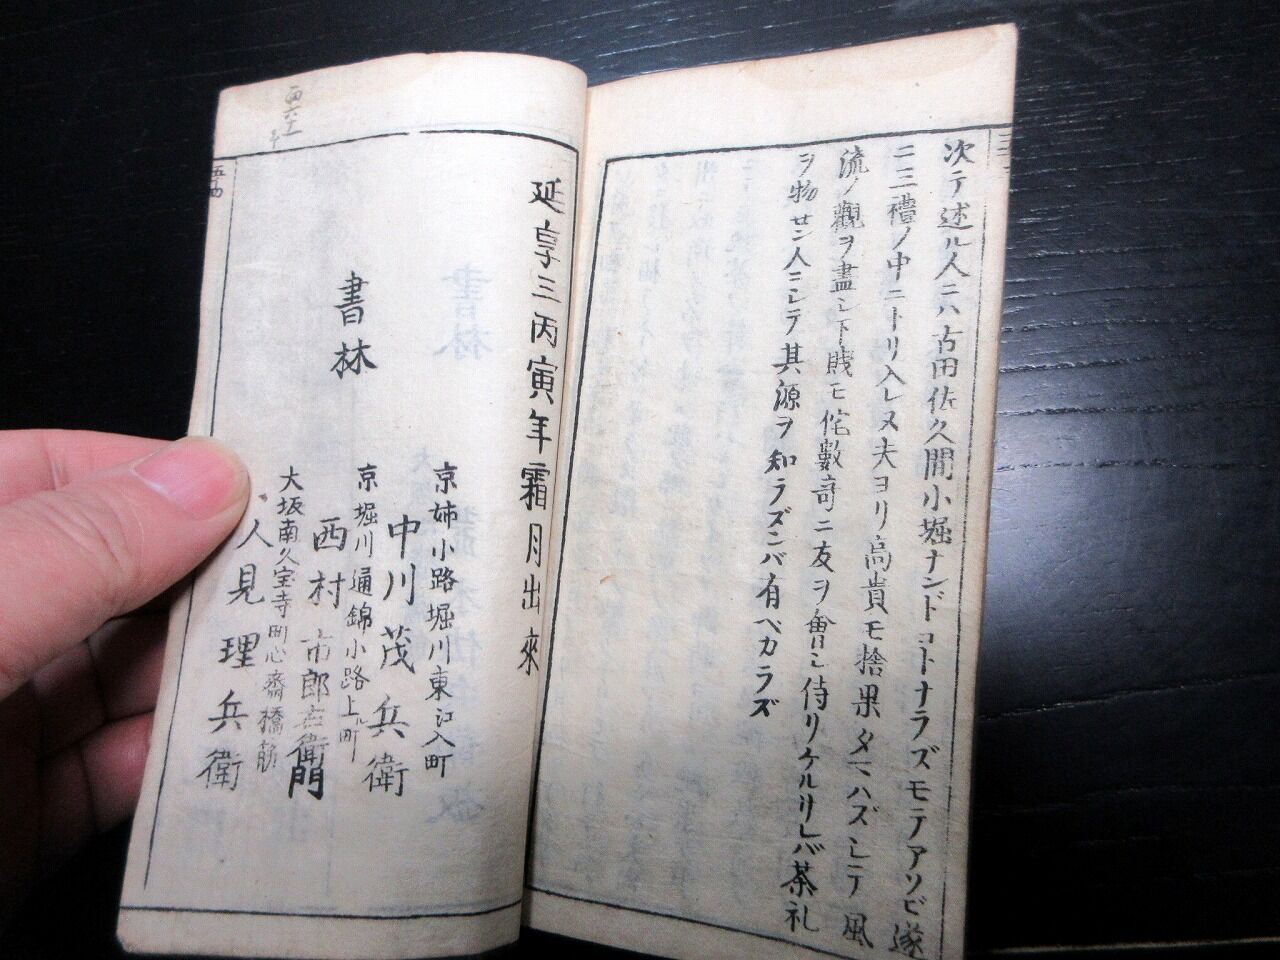 次テ述ル人ニハ古田佐久間小堀ナンドコトナラズモテアソビ遂
ニ三禮ノ中ニトリ入レヌ夫ヨリ高貴モ捨果タマハズシテ風
流ノ觀ヲ盡シ下賎モ侘數奇ニ友ヲ會シ侍リケルサレバ茶礼
ヲ物セン人ニシテ其源ヲ知ラズンバ有ベカラズ
延享三丙寅年霜月出來
書林
京姉小路堀川東江入町
中川茂兵衛
京堀川通錦小路上ル町
西村市郎右衛門
大坂南久宝寺町心斎橋筋
人見理兵衛
五十四